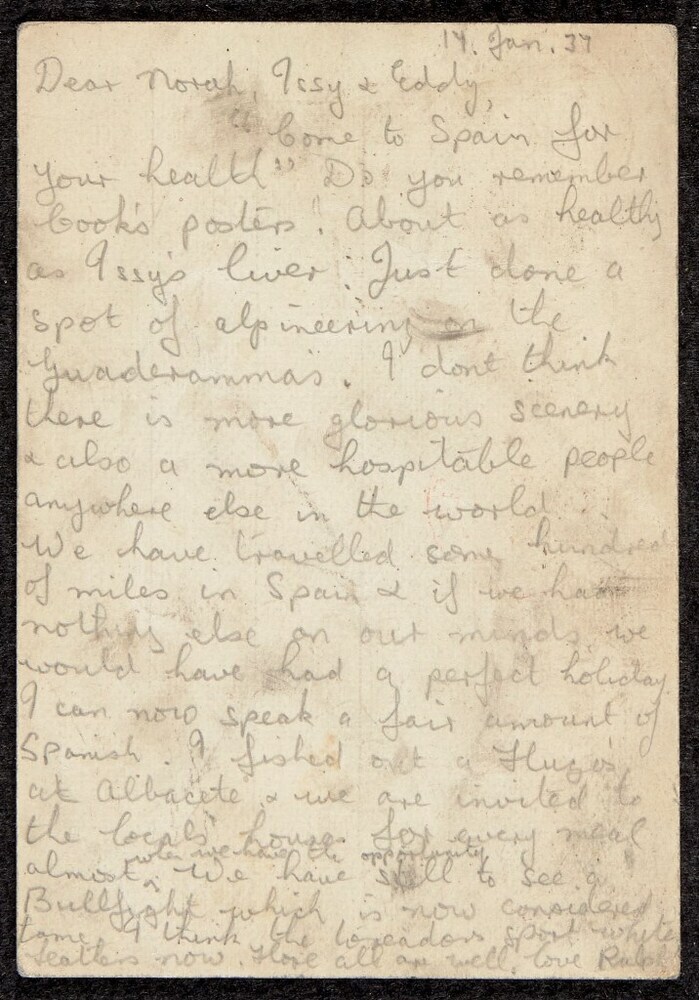 14. Jan. 37
Dear Norah, Issy & Eddy,
"Come to Spain for
your health" Do you remember
Cook's posters! About as healthy
as Issy's liver! Just done a
spot of alpineering on the
Guaderamma's. I dont think
there is more glorious scenery
& also a more hospitable people
anywhere else in the world..
We have travelled some hundred
of miles in Spain & if we had
nothing else on our minds we
would have had a perfect holiday.
I can now speak a fair amount of
Spanish. I fished out a Hugo's
at Albacete & we are invited to
the locals' houses for every meal
almost when we have the opportunity. We have still to see a
Bullfight which is now considered
tame. I think the toreadors sport white
feathers now. Hope all are well, love Ralph